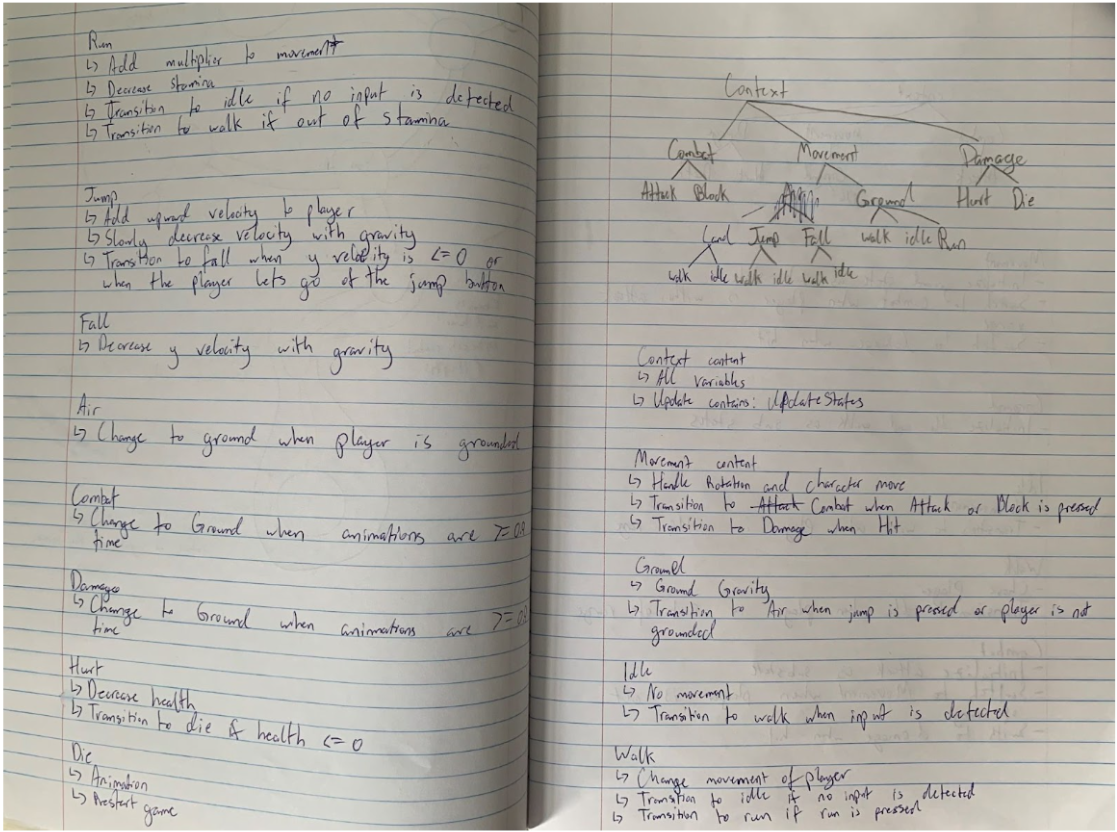 Run
↳ Add multiplier to movement
↳ Decrease stamina
↳ Transition to idle if no input is detected
↳ Transition to walk if out of stamina
Jump
↳ Add upward velocity to player
↳ Slowly decrease velocity with gravity
↳ Transition to fall when y velocity is <=0 or
when the player lets go of the jump button
Fall
↳ Decrease y velocity with gravity
Air
↳ Change to ground when player is grounded
Combat
↳ Change to Ground when animations are >=
time
Damage
↳ Change to Ground when animations are >=
time
Hurt
↳ Decrease health
↳ Transition to die if health <=0
Die
↳ Animation
↳ Restart game
Context
Combat Movement Damage
Attack Block Ground Hurt Die
Land Jump Fall walk idle Run
walk idle walk idle walk idle
Context content
↳ All variables
↳ Update contains: UpdateStates
Movement content
↳ Handle Rotation and character move
↳ Transition to Attack Combat when Attack or Block is pressed
↳ Transition to Damage when Hit
Ground
↳ Ground Gravity
↳ Transition to Air when jump is pressed or player is not
grounded
Idle
↳ No movement
↳ Transition to walk when input is detected
Walk
↳ Change movement of player
↳ Transition to idle if no input is detected
↳ Transition to run if run is pressed